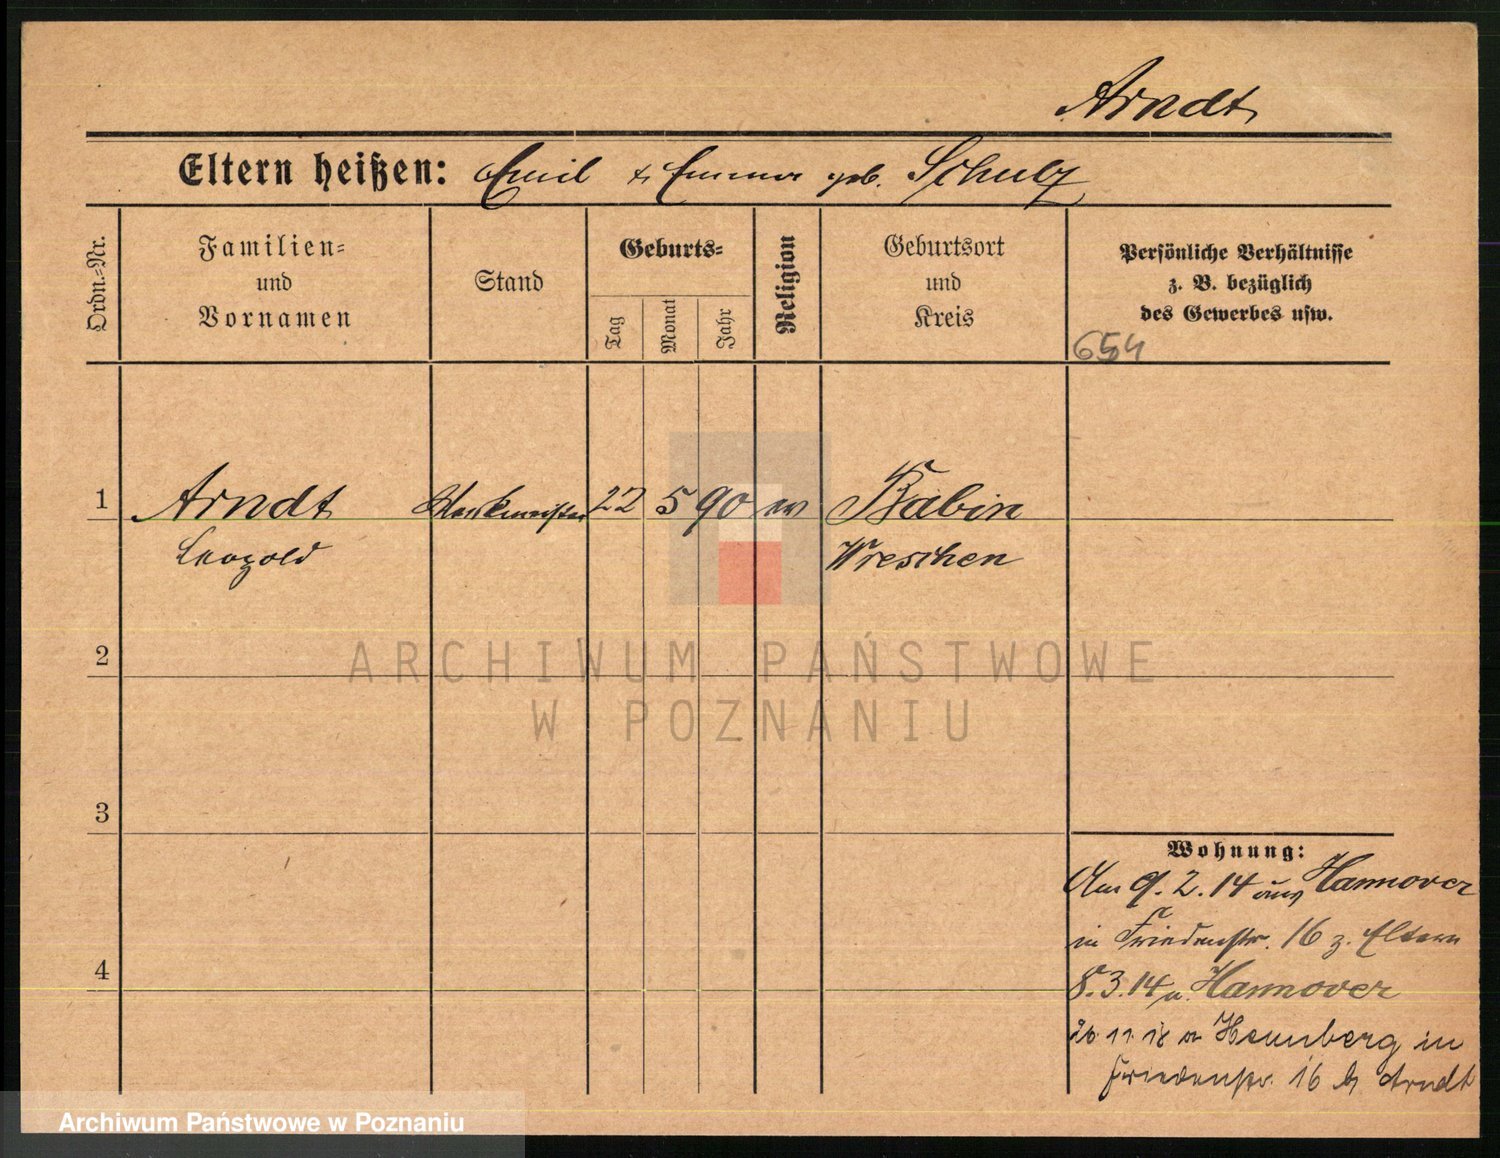 Arndt
Eltern heißen: Emil & Emma geb. Schulz
Ordn.-Nr.
Familien-
und
Vornamen
Stand
Geburts-
Tag
Monat
Jahr
Religion
Geburtsort
und
Kreis
Persönliche Verhältnisse
z. B. bezüglich
des Gewerbes usw.
654
1 Arndt Werkmeister 22 5 90 ev Babin
Leopold Wreschen
2
ARCHIWUM PAŃSTWOWE
W POZNANIU
3
Wohnung:
Am 9.2.14 aus Hannover
in Friedenstr. 16 z. Eltern
4
8.3.14 n. Hannover
26.11.18 a Hennberg in
Friedenstr. 16 b Arndt
Archiwum Państwowe w Poznaniu